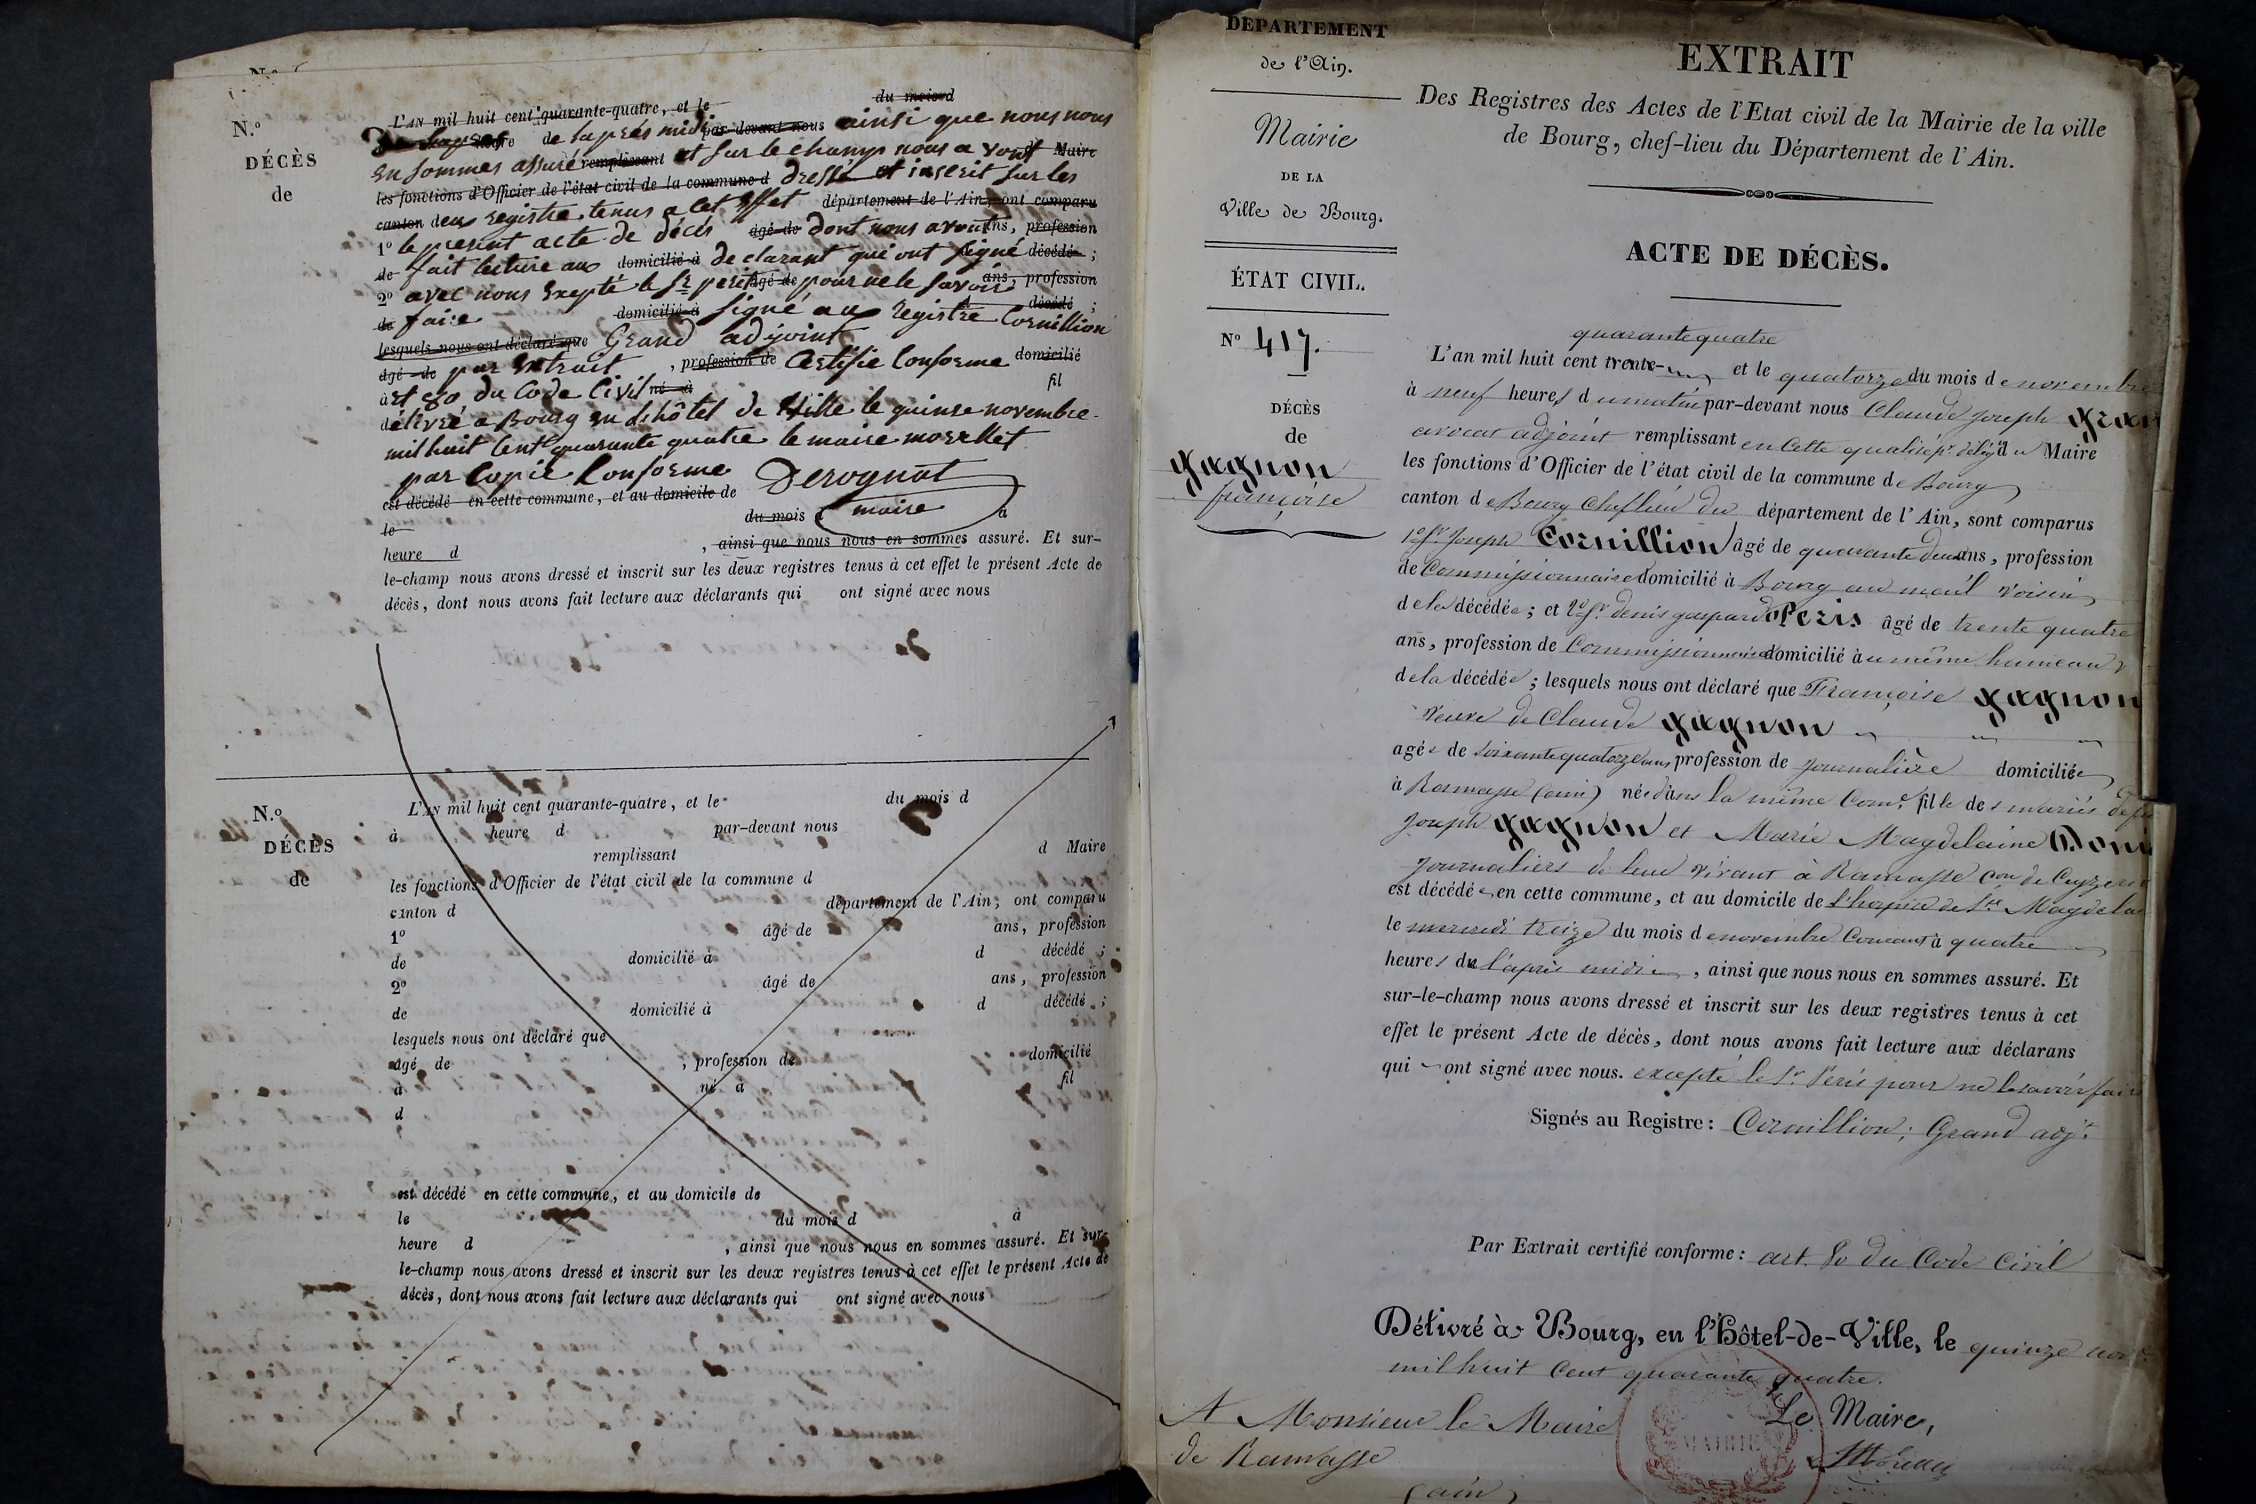 N.º
DÉCÈS
de
L'AN mil huit cent quarante-quatre, et le du mois d
heure de lapres midi par-devant nous ainsi que nous nous
en sommes assuré remplissant et sur le champ nous avons d Maire
les fonctions d'Officier de l'état civil de la commune d dressé et inscrit sur les
canton deux registre tenus a cet effet département de l'Ain, ont comparu
1º le present acte de décès âgé de dont nous avont ans, profession
de fait lecture aux domicilié à declarant qui ont signé décédé ;
2º avec nous exepté le Sr peris âgé de pour ne le savoir ans, profession
de faire domicilié à signé au registre Cornillion d décédé ;
lesquels nous ont déclaré que Grand adjoint
âgé de par extrait , profession de Certifie Conforme domicilié
à et 80 du Code Civil né à fil
délivré a Bourg en l'hôtel de Ville le quinse novembre
mil huit Cent quarante quatre le maire morellet
par Copie Conforme Derognat
est décédé en cette commune, et au domicile de
maire
le du mois d à
heure d , ainsi que nous nous en sommes assuré. Et sur-
le-champ nous avons dressé et inscrit sur les deux registres tenus à cet effet le présent Acte de
décès, dont nous avons fait lecture aux déclarants qui ont signé avec nous
N.º
DÉCÈS
de
L'AN mil huit cent quarante-quatre, et le du mois d
à heure d par-devant nous
remplissant d Maire
les fonctions d'Officier de l'état civil de la commune d
canton d département de l'Ain, ont comparu
1º âgé de ans, profession
de domicilié à d décédé ;
2º âgé de ans, profession
de domicilié à d décédé ;
lesquels nous ont déclaré que
âgé de , profession de domicilié
à né à fil
d
est décédé en cette commune, et au domicile de
le du mois d à
heure d , ainsi que nous nous en sommes assuré. Et sur-
le-champ nous avons dressé et inscrit sur les deux registres tenus à cet effet le présent Acte de
décès, dont nous avons fait lecture aux déclarants qui ont signé avec nous
DÉPARTEMENT
de l'Ain.
Mairie
DE LA
Ville de Bourg.
ÉTAT CIVIL.
Nº 417.
DÉCÈS
de
gagnon
françoise
EXTRAIT
Des Registres des Actes de l'Etat civil de la Mairie de la ville
de Bourg, chef-lieu du Département de l'Ain.
ACTE DE DÉCÈS.
quarante quatre
L'an mil huit cent trente- et le quatorze du mois de novembre
à neuf heures du matin par-devant nous Claude Joseph Gran
avocat adjoint remplissant en cette qualité pr délégn du Maire
les fonctions d'Officier de l'état civil de la commune de Bourg
canton de Bourg Chef lieu du département de l'Ain, sont comparus
1º Sr Joseph Cornillion âgé de quarante deux ans, profession
de Commissionnaire domicilié à Bourg au mail voisin
de la décédée ; et 2º Sr denis gaspard Peris âgé de trente quatre
ans, profession de Commissionnaire domicilié au même hameau v
de la décédée ; lesquels nous ont déclaré que Françoise gagnon
veuve de Claude gagnon
agée de soixante quatorze ans profession de journalière domiciliée
à Ramasse (ain) née dans la même Come fille des mariés
Joseph gagnon et Marie Magdelaine
journaliers de leur vivant à Ramasse Con de Ceyzeri
est décédée en cette commune, et au domicile de l'hospice de Ste Magdela
le mercredi treize du mois de novembre Courant à quatre
heures de l'après midi , ainsi que nous nous en sommes assuré. Et
sur-le-champ nous avons dressé et inscrit sur les deux registres tenus à cet
effet le présent Acte de décès, dont nous avons fait lecture aux déclarans
qui ont signé avec nous. excepté le Sr Peris pour ne le savoir faire
Signés au Registre : Cornillion ; Grand adjt
Par Extrait certifié conforme : art. 80 du Code Civil
Délivré à Bourg, en l'Hôtel-de-Ville, le quinze nov
mil huit cent quarante quatre.
Le Maire,
MAIRIE
A Monsieur le Maire
de Ramasse
(ain)